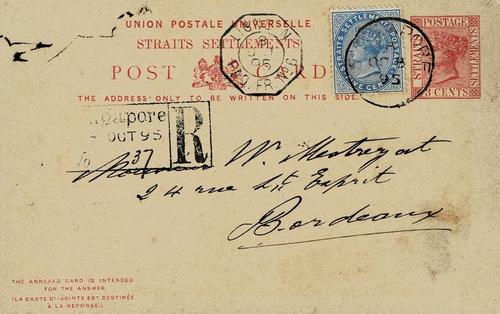 UNION POSTALE UNIVERSELLE
STRAITS SETTLEMENTS
POST CARD
THE ADDRESS ONLY TO BE WRITTEN ON THIS SIDE.
STRAITS SETTLEMENTS POSTAGE
POSTAGE
STRAITS SETTLEMENTS
3 CENTS
PAQ. FR. No 6
PORE
gapore
OCT 95
R
37
Monsieur W. Mestrezat
24 rue St Esprit
Bordeaux
THE ANNEXED CARD IS INTENDED
FOR THE ANSWER.
(LA CARTE CI-JOINTE EST DESTINÉE
À LA RÉPONSE.)